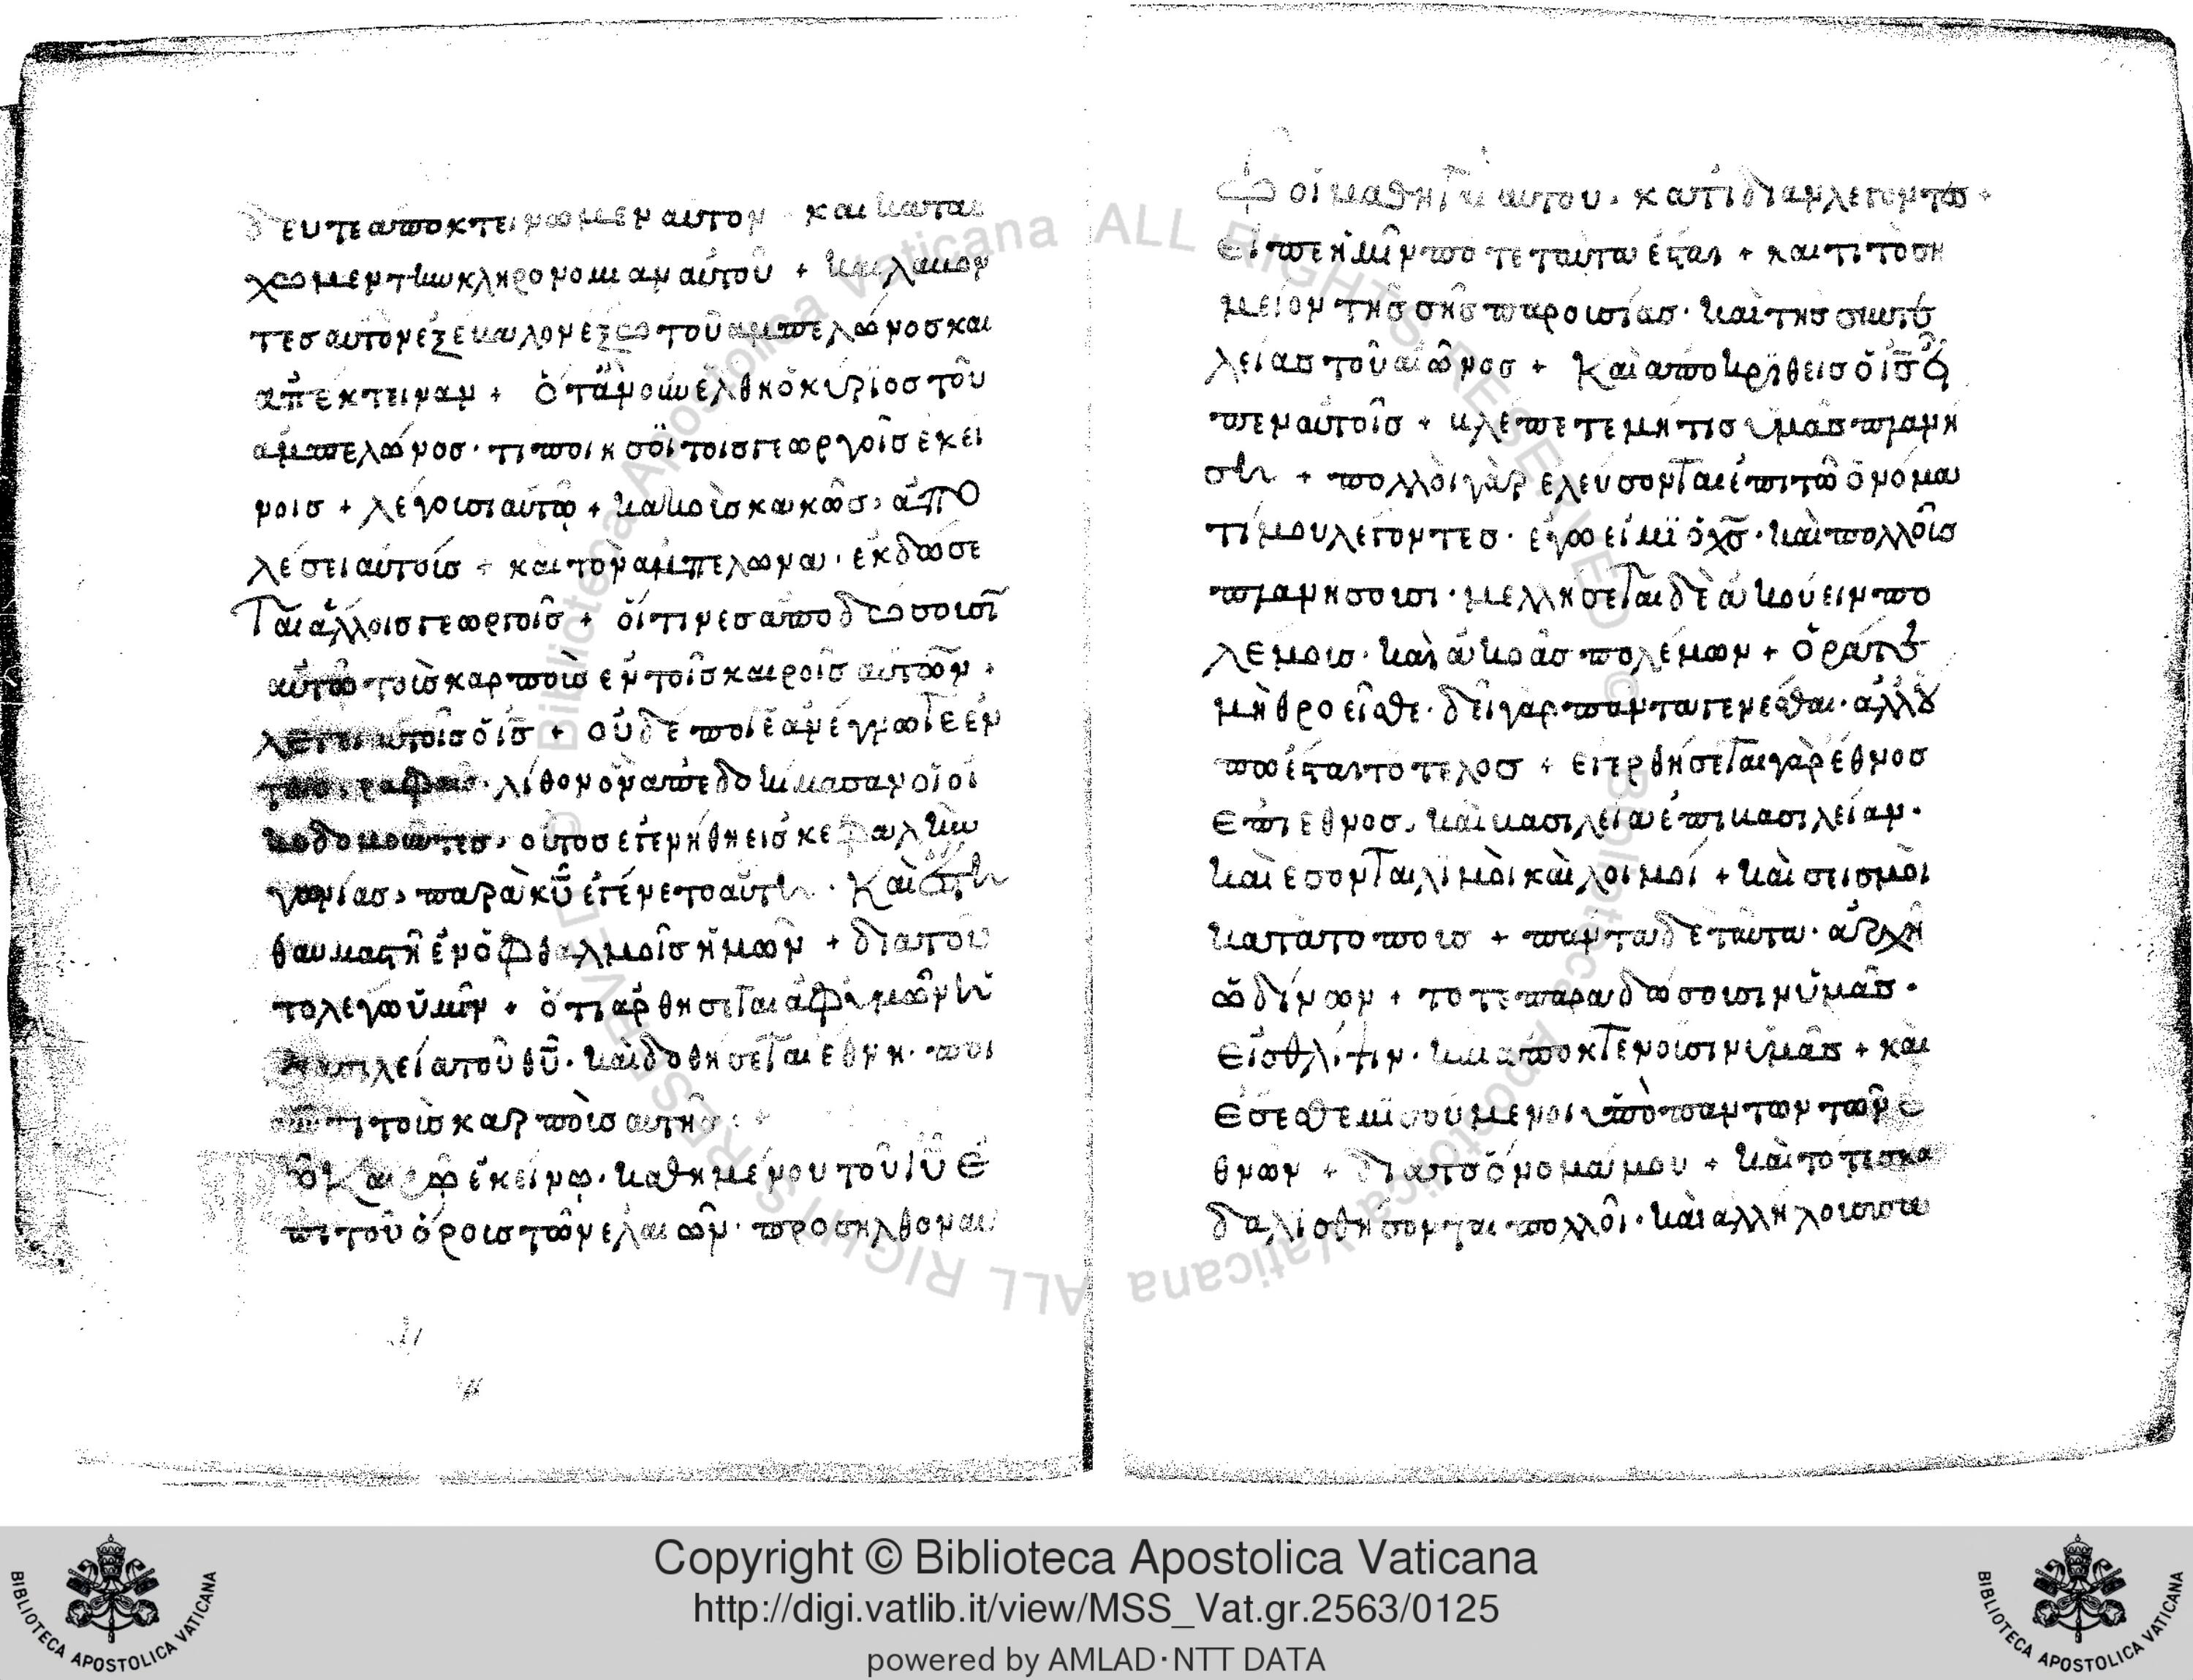 δευτεαποκτεινωμεναυτον και κατας
χωμεντηνκληρονομιαναυτοῦ + και λαβον
τεσαυτὸνἐξέβαλονἐξωτοῦαμπελῶνοσκαι
απἔκτειναν + ὁτὰνοὖνέλθηὁκύριοστοῦ
αμπελῶνοσ· τιποιησὄϊτοισγεωργοῖσἐκεί
νοισ + λέγουσιαυτῶ + κακοὺσκακῶσ, ἀπο
λέσειαὐτούσ + καὶτὸναμπελωνα· ἐκδώσε
ταιἄλλοισγεωργοῖσ + οἵτινεσαποδώσουσῖ
αὐτῶτοὺσκαρποὺσἐντοῖσκαιροῖσαὐτῶν +
λεγειαυτοῖσὁισ̅ + οὐδέποτεἀνέγνωτεἐν
ταισγραφαισ· λίθονὃναπεδοκίμασανοἱοἰ
κοδομουντεσ, οὗτοσἐγενήθηεισκεφαλὴν
γωνίασ, παρὰκυ̅ἐγένετοαὕτη· Καὶἔστι
θαυμαστὴἐνὀφθαλμοῖσἡμῶν + διατοῦ
τολέγωὑμῖν + ὁτιαρθήσεταιἀφὑμῶνἡ
βασιλείατοῦθυ̅· καὶδοθήσεταιέθνη· ποι
οῦντιτοὺσκαρποὺσαυτῆσ :+
Τῶκαιρῶἐκείνω· καθημένουτοῦιυ̅ἐ
πιτοῦὄρουστῶνελαιῶν· προσηλθοναυ
τῶ οἱμαθηταὶαυτου· κατἰδίανλέγοντεσ +
Εἰπεἡμῖνποτεταῦταἐσται + καιτιτὸση
μεῖοντῆσσῆσπαρουσίασ· καὶτῆσσυντε
λείαστοῦαἰῶνοσ + Καὶαποκριθεισὁισ̅εἶ
πεναὐτοῖσ + βλέπετεμήτισὑμᾶσπλανή
ση + πολλοὶγὰρἐλεύσονταιἐπιτῶὀνόμα
τίμουλέγοντεσ· ἐγὼεἰμϊὁχσ̅· καὶπολλοὺσ
πλανήσουσι· μελλήσεταιδὲἀκούεινπο
λέμουσ· καὶἀκοὰσπολέμων + ὁρᾶτε
μὴθροεῖσθε· δεῖγὰρπάνταγενέσθαι· ἀλλοὔ
πωἐσταιτοτελοσ + ἐγερθήσεταιγὰρἔθνοσ
ἐπιἔθνοσ, καὶβασιλείαἐπιβασιλείαν·
καὶἔσονταιλιμοὶκαὶλοιμοί + καὶσεισμοὶ
κατατοπουσ + πάνταδὲταῦτα· ἀρχὴ
ὠδίνων + τοτεπαραδώσουσινὑμᾶσ·
εἰσθλίψιν· καιαποκτενοῦσινὑμᾶσ + καὶ
ἔσεσθεμισούμενοιὑπὸπαντωντῶνἐ
θνων + διατοὄνομάμου + καὶτότεσκα
δαλισθήσονταιπολλοὶ· καὶαλλήλουσπα